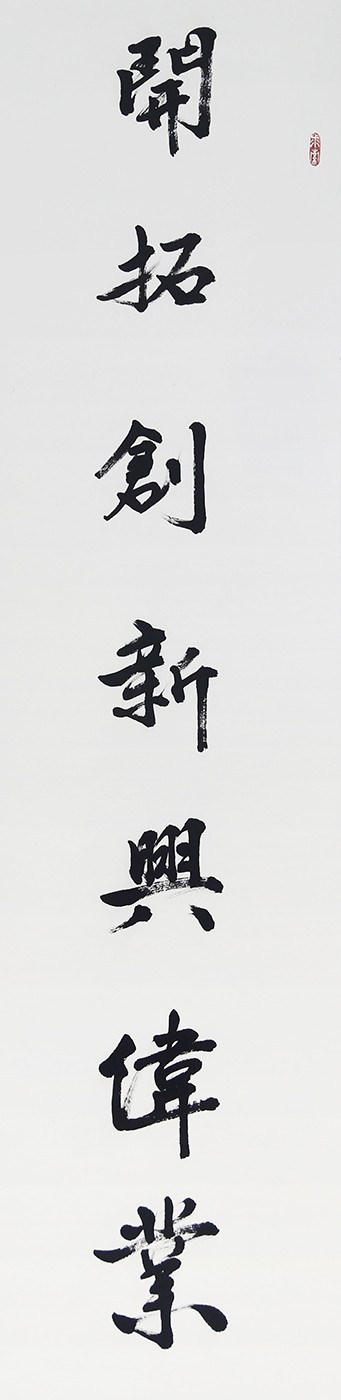 開拓創新興偉業